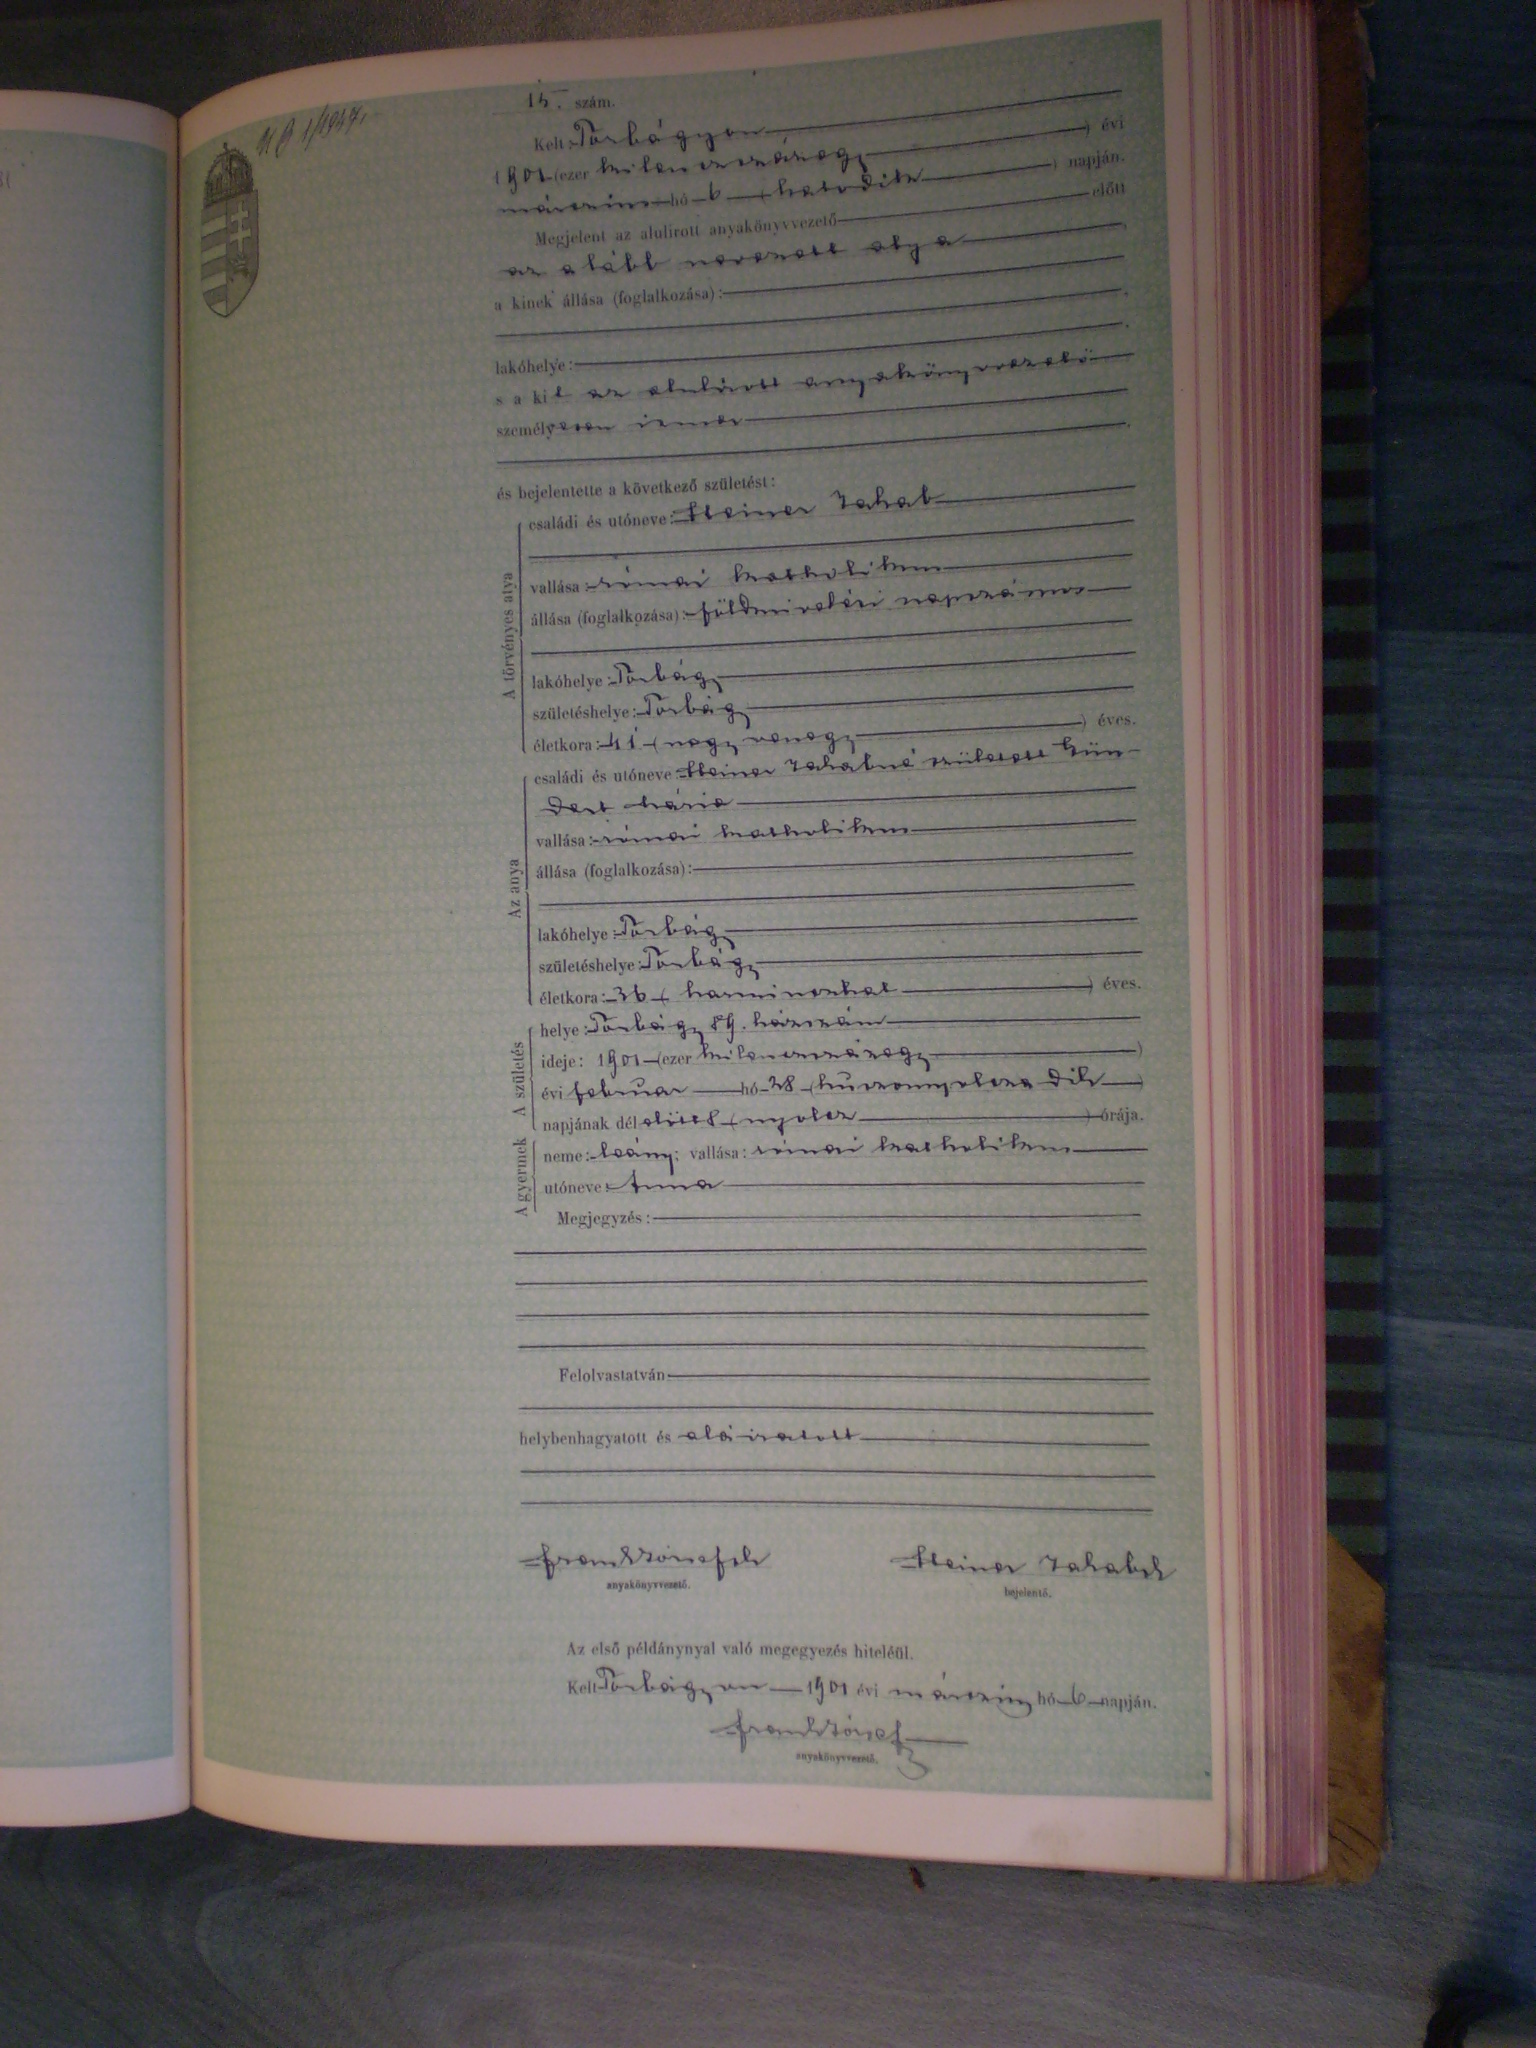 15. szám.
Kelt Torbágyon
1901 (ezer kilenczszázegy) évi
márczius hó 6 (hatodik) napján.
Megjelent az alulirott anyakönyvvezető előtt
az alább nevezett atya
a kinek állása (foglalkozása):
lakóhelye:
s a kit az alulirott anyakönyvvezető
személyesen ismer
és bejelentette a következő születést:
A törvényes atya
családi és utóneve: Steiner Jakab
vallása: római katholikus
állása (foglalkozása): földmivelési napszámos
lakóhelye: Torbágy
születéshelye: Torbágy
életkora: 41 (negyvenegy) éves.
Az anya
családi és utóneve: Steiner Jakabné született
Mária
vallása: római katholikus
állása (foglalkozása):
lakóhelye: Torbágy
születéshelye: Torbágy
életkora: 36 (harminczhat) éves.
A születés
helye: Torbágy 89. házszám
ideje: 1901 (ezer kilenczszázegy)
évi február hó 28 (huszonnyolcza dik)
napjának dél előtt 8 (nyolcz) órája.
A gyermek
neme: leány; vallása: római katholikus
utóneve: Anna
Megjegyzés:
Felolvastatván
helybenhagyatott és aláiratott
anyakönyvvezető.
Steiner Jakab
bejelentő.
Az első példánynyal való megegyezés hiteléül.
Kelt Torbágyon 1901 évi márczius hó 6 napján.
anyakönyvvezető.